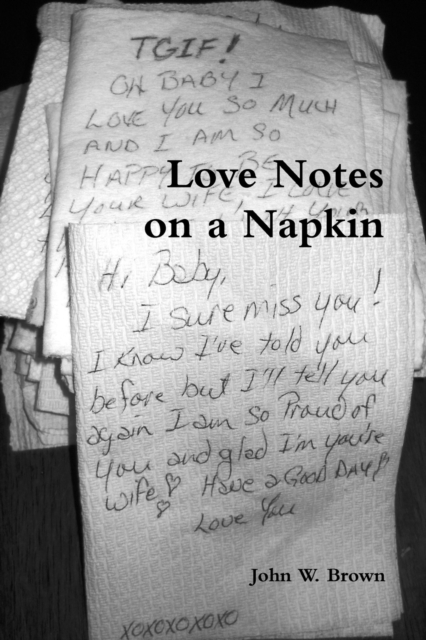 TGIF!
OH BABY I
LOVE YOU SO MUCH
AND I AM SO
HAPPY TO BE
YOUR WIFE, I LOVE
Love Notes
on a Napkin
Hi Baby,
I sure miss you!
I know I've told you
before but I'll tell you
again I am so Proud of
you and glad I'm you're
wife♡ Have a Good DAY!
♡
Love You
John W. Brown
XOXOXOXOXO